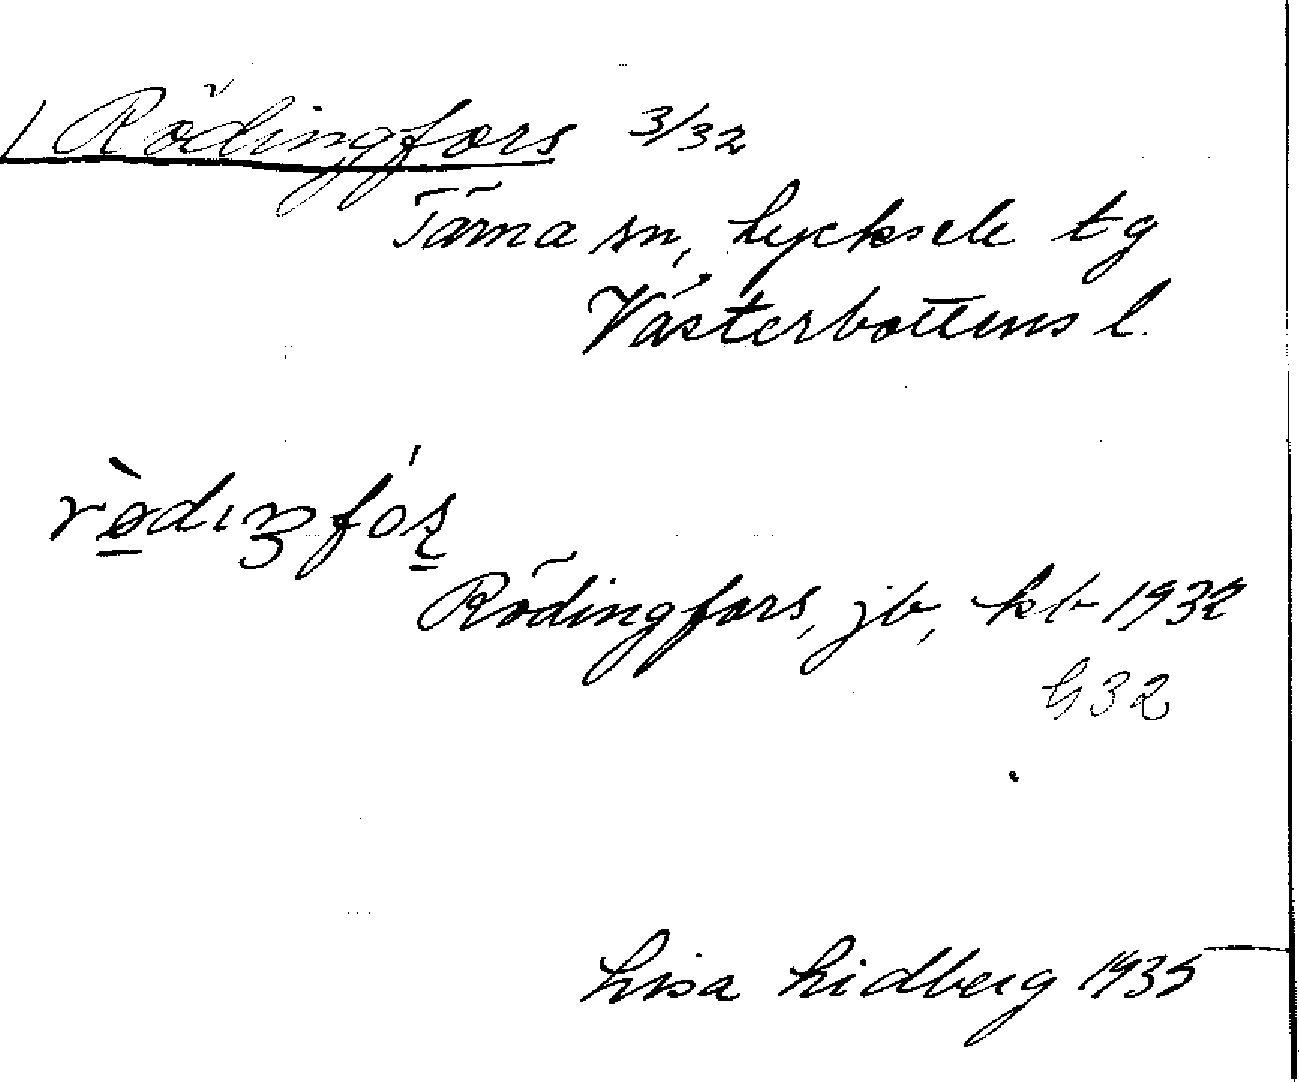 / Rödingfors 3/32
Tärna sn, Lycksele tg
Västerbottens l.
rø̀dıŋfóș
Rödingfors, jb, kb 1932
G32
Lisa Lidberg 1935